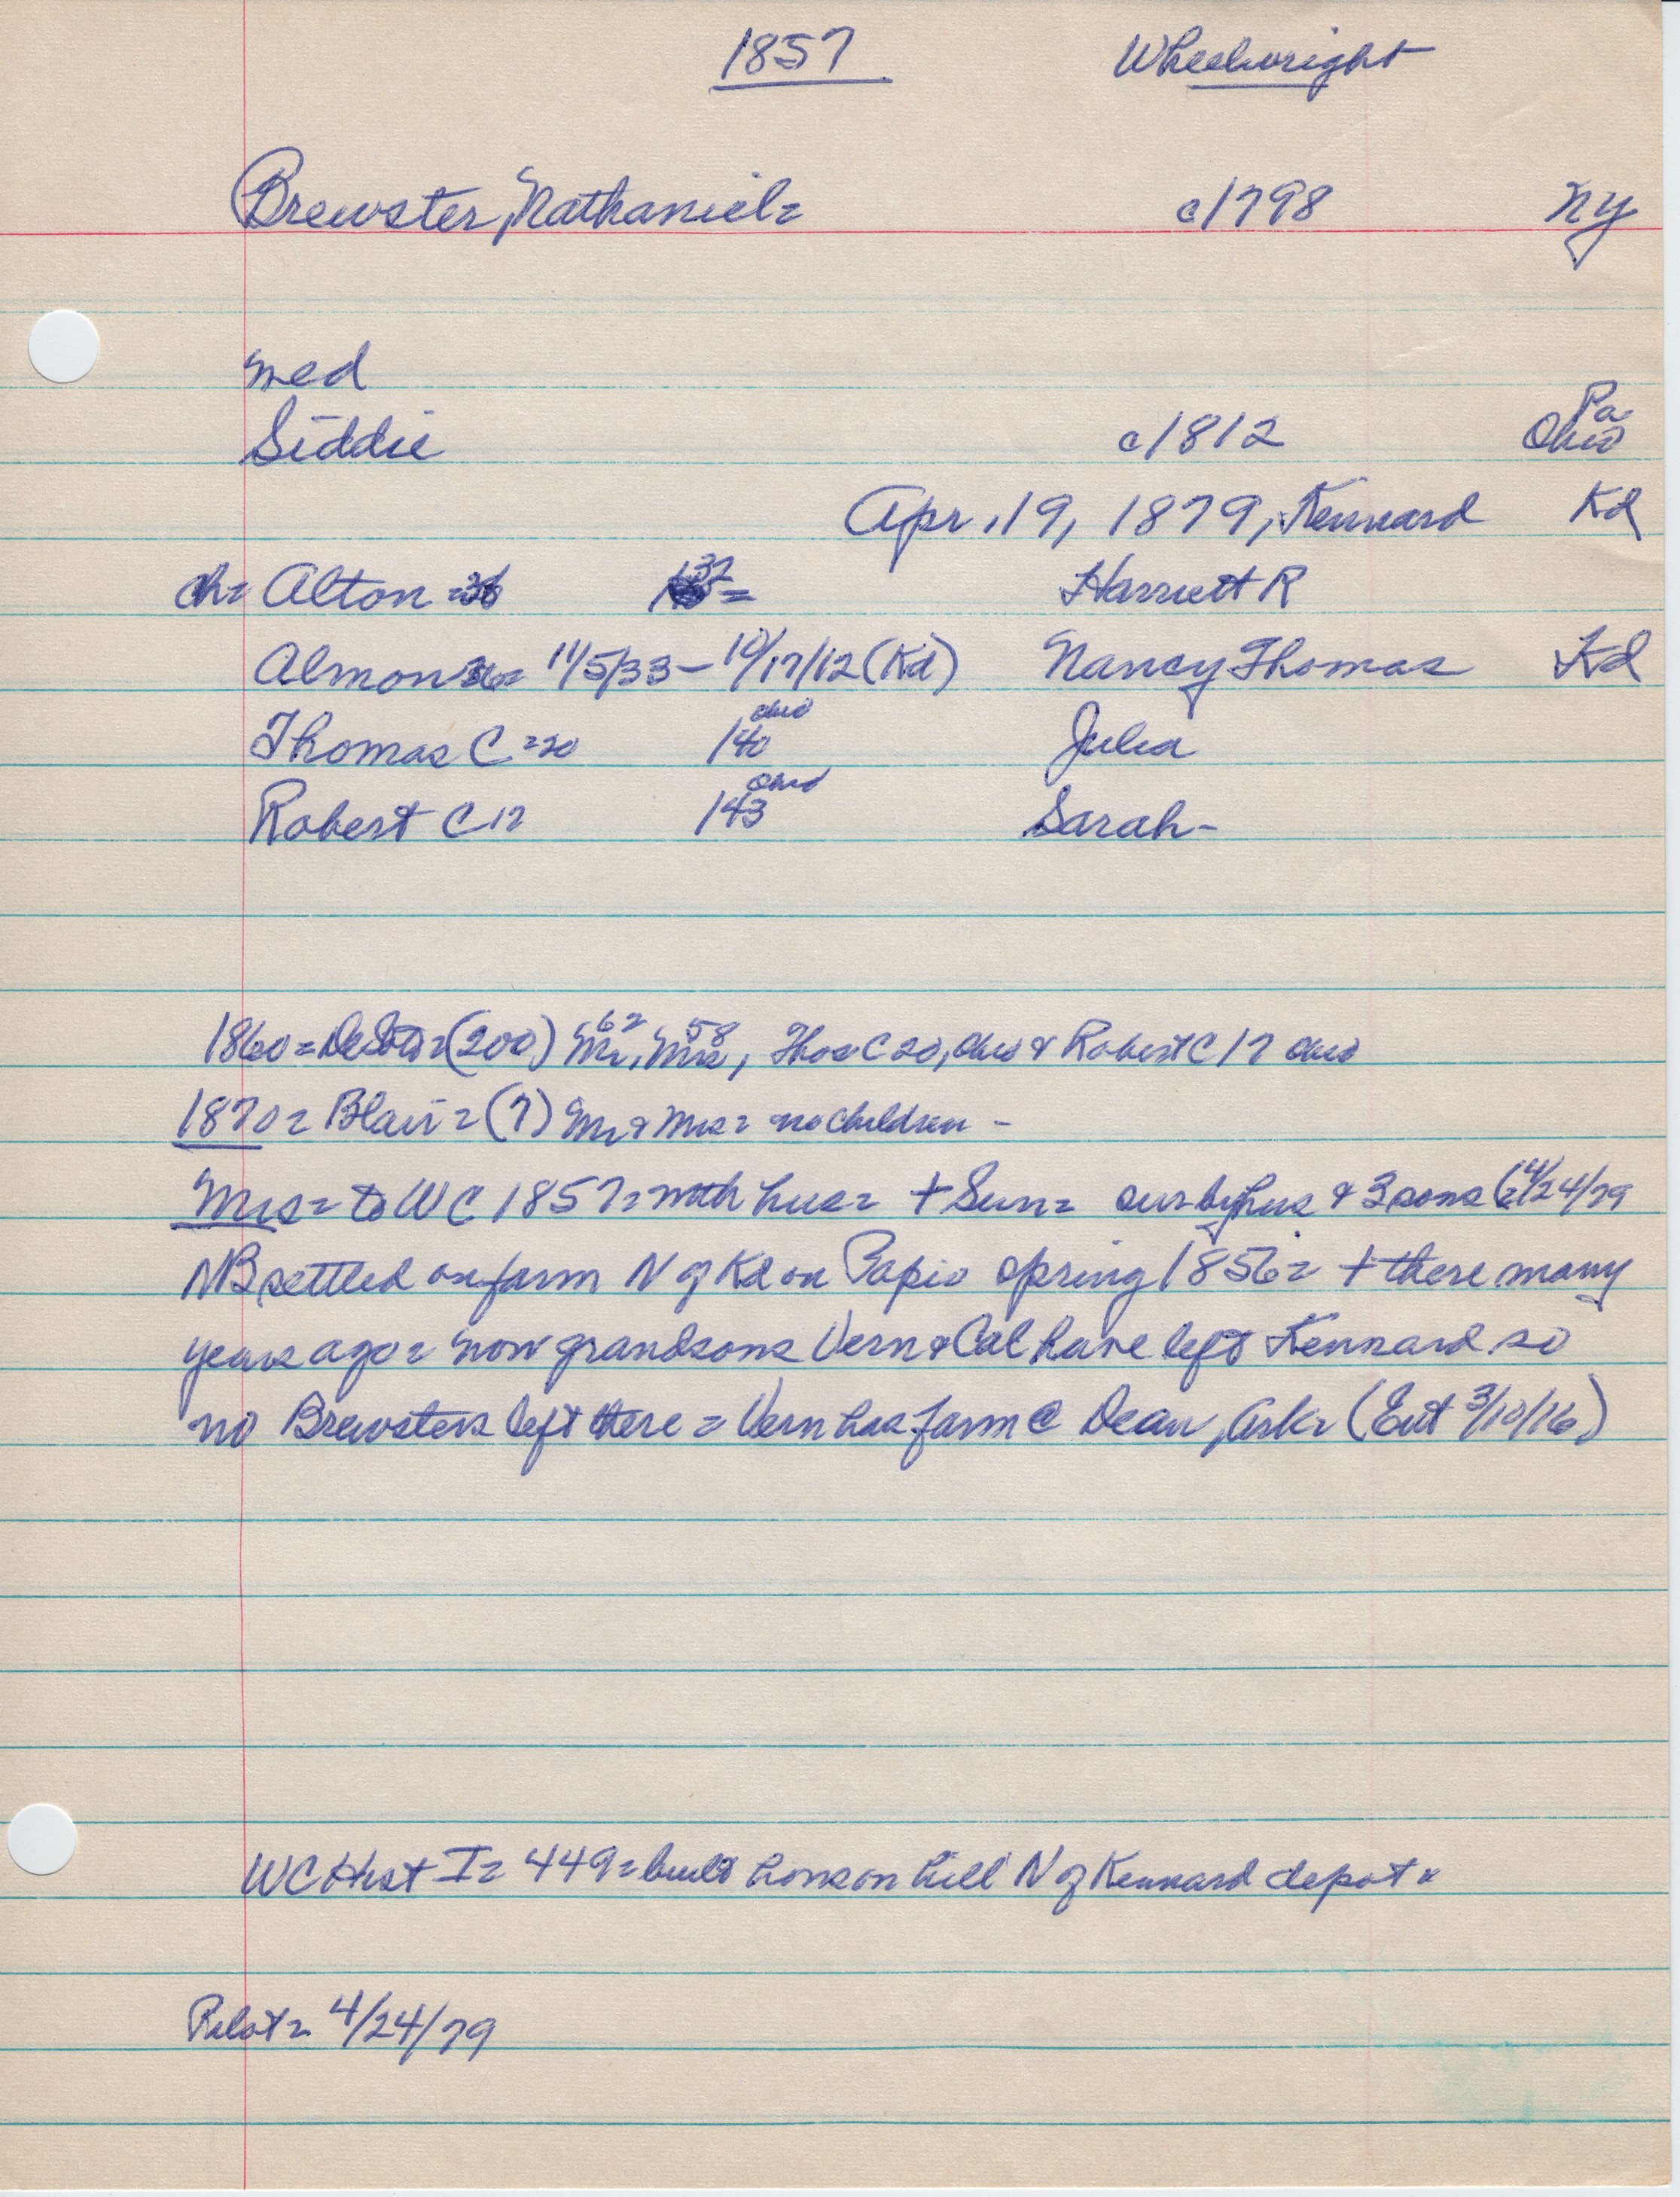 1857 Wheelwright
Brewster, Nathaniel= c1798 NY
med
Siddie c1812 Pa Ohio
Apr. 19, 1879, Kennard Kd
ch= Alton = 32 Harriett R
Almon = 11/5/33 - 10/17/12 (Kd) Nancy Thomas Kd
Thomas C =20 /40 ohio Julia
Robert C 17 /43 Ohio Sarah-
1860 = DeSoto = (200) Mr. 62 Mrs 58, Thos C 20, ohio & Robert C 17 ohio
1870 = Blair = (7) Mr & Mrs = no children -
Mrs = to WC 1857 = with hus = + Sun = sur by hus & 3 sons (4/24/79
NB settled on farm N of Kd on Papio spring 1856 = + there many
years ago = now grandsons Vern & Cal have left Kennard so
no Brewsters left there = Vern has farm @ Dean, Ark = (Ent 3/10/16)
WC Hist I = 449 = built home on hill N of Kennard depot
Pilot = 4/24/79